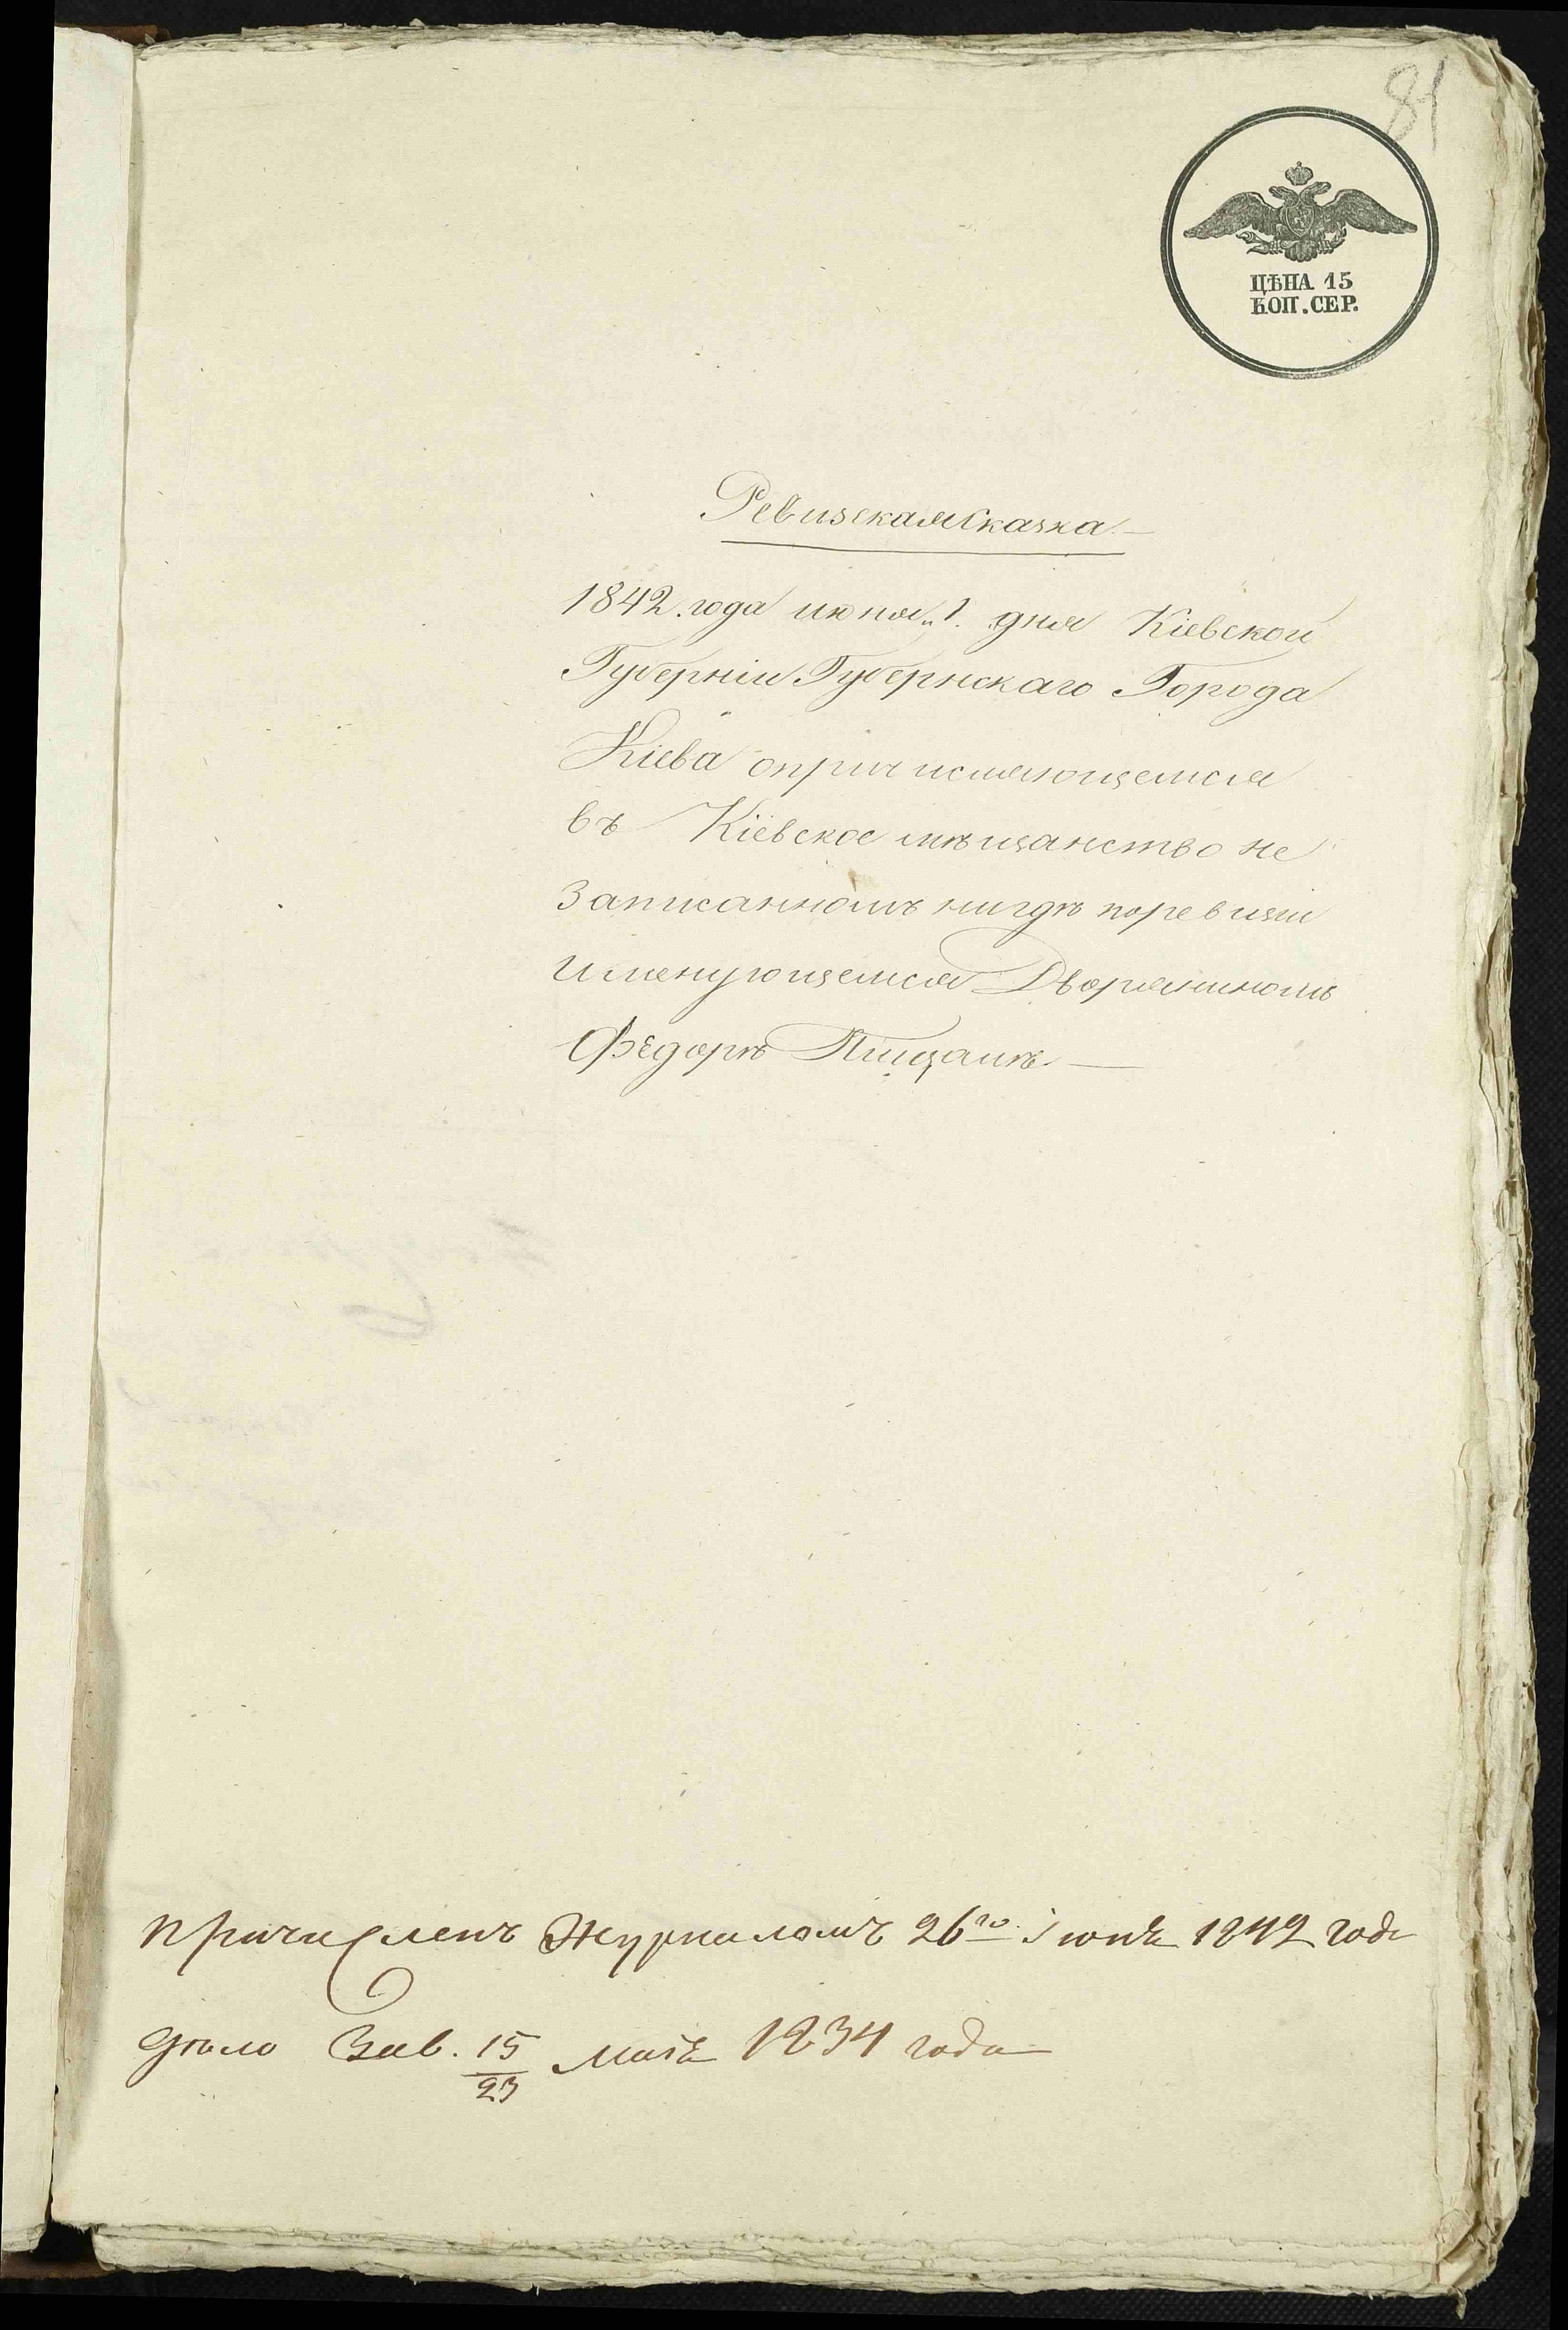 81
ЦѢНА 15
КОП. СЕР.
Ревизская Сказка
1842 года июня 1. дня Кіевской
Губерніи Губернскаго Города
Кіева опричисляющемся
въ Кіевское мѣщанство не
записанномъ нигдѣ поревизіи
именующемся Дворяниномъ
Федорѣ
Причисленъ Журналомъ 26го Іюня 1842 года
дѣло Зав. 15/23 мая 1834 года